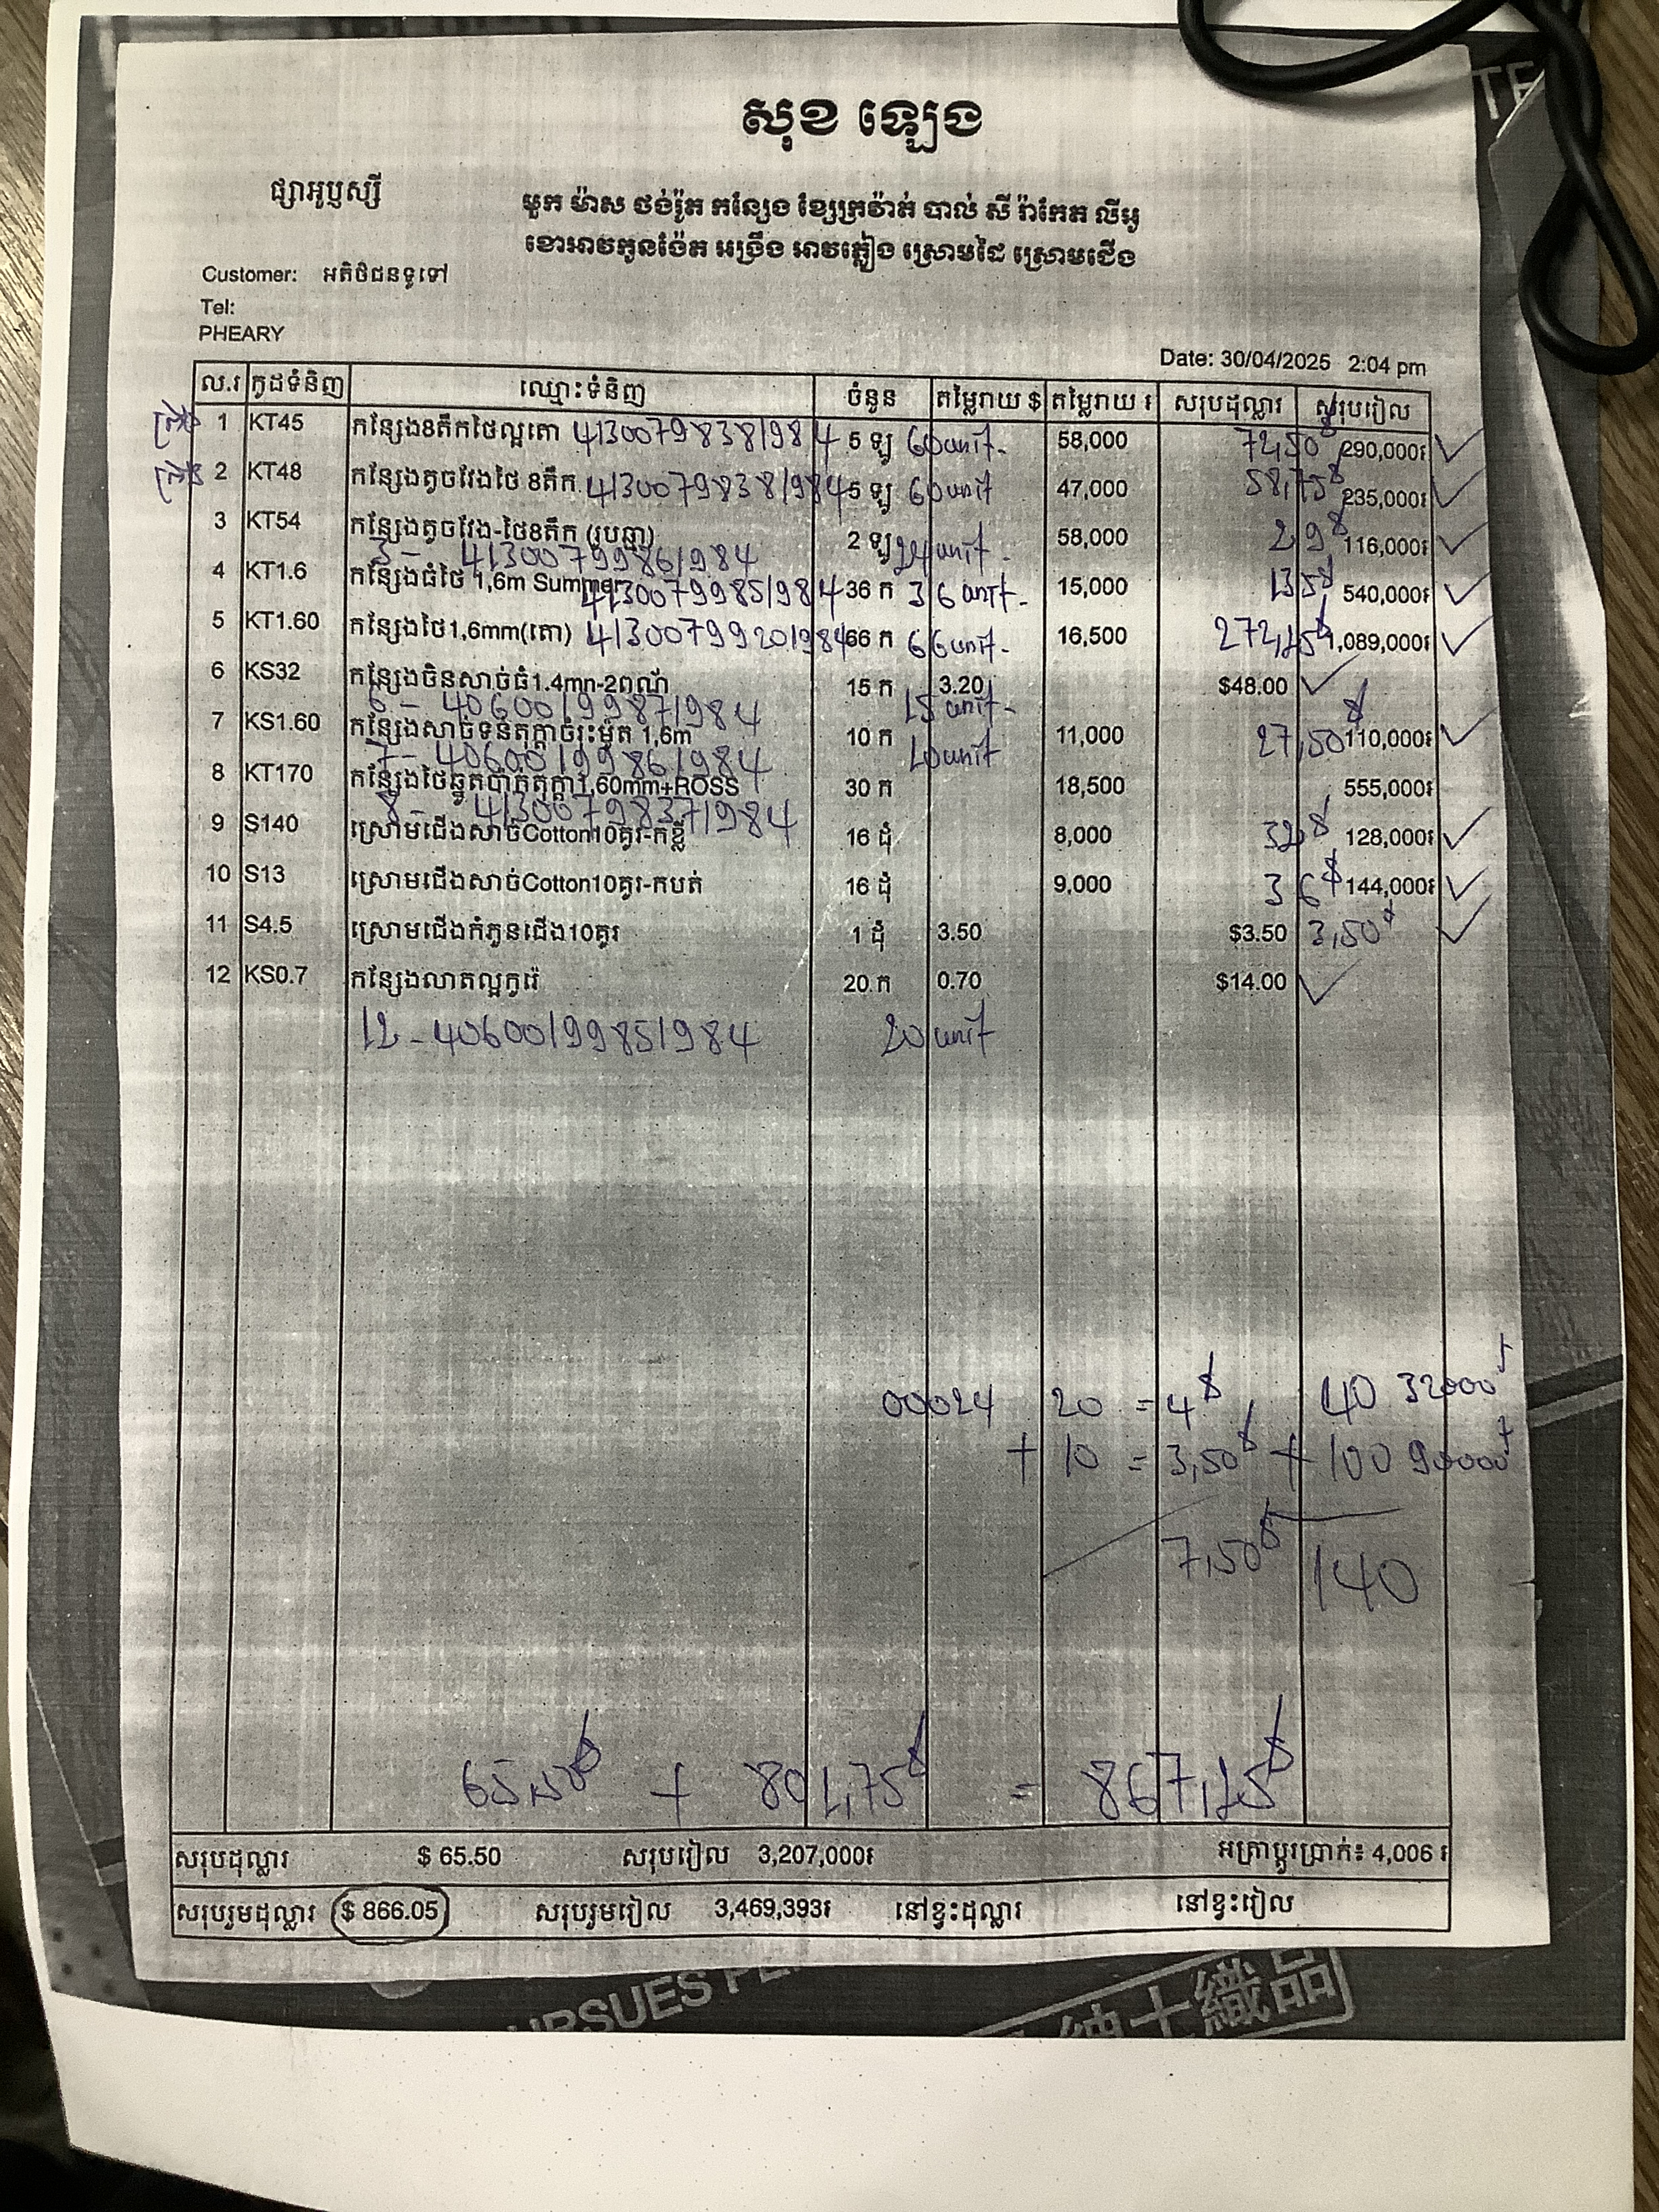 សុខ ឡេង
ផ្សារអូឫស្សី
មួក ម៉ាស ថង់រ៉ូត កន្សែង ខ្សែក្រវ៉ាត់ បាល់ សី រ៉ាកែត លីអូ
ខោអាវកូនង៉ែត អង្រឹង អាវភ្លៀង ស្រោមដៃ ស្រោមជើង
Customer: អតិថិជនទូទៅ
Tel:
PHEARY
Date: 30/04/2025 2:04 pm
ល.រ កូដទំនិញ ឈ្មោះទំនិញ ចំនួន តម្លៃរាយ $ តម្លៃរាយ ៛ សរុបដុល្លារ សរុបរៀល
1 KT45 កន្សែង8តឹកថៃល្អតោ 41300798381984 5 ឡូ 60unit. 58,000 72,50$ 290,000៛ ✓
2 KT48 កន្សែងតូចវែងថៃ 8តឹក 41300798381984 5 ឡូ 60unit 47,000 58,75$ 235,000៛ ✓
3 KT54 កន្សែងតូចវែង-ថៃ8តឹក (រូបឆ្មា) 2 ឡូ 24unit. 58,000 29$ 116,000៛ ✓
3 - 41300799861984
4 KT1.6 កន្សែងធំថៃ 1,6m Summer 41300799851984 36 ក 36 unit. 15,000 135$ 540,000៛ ✓
5 KT1.60 កន្សែងថៃ1,6mm(តោ) 41300799201984 66 ក 66unit. 16,500 272,25$ 1,089,000៛ ✓
6 KS32 កន្សែងចិនសាច់ធំ1.4mn-2ពណ៌ 15 ក 3.20 $48.00 ✓
6 - 40600199871984 15 unit-
7 KS1.60 កន្សែងសាច់ទន់តុក្តាចំរុះម៉ូត 1,6m 10 ក 10unit 11,000 27,50$ 110,000៛ ✓
7 - 40600199861984
8 KT170 កន្សែងថៃឆ្នូតប៉ាក់តុក្តា1,60mm+ROSS 30 ក 18,500 555,000៛
8 - 41300798371984
9 S140 ស្រោមជើងសាច់Cotton10គូរ-កខ្លី 16 ដុំ 8,000 32$ 128,000៛ ✓
10 S13 ស្រោមជើងសាច់Cotton10គូរ-កបត់ 16 ដុំ 9,000 36$ 144,000៛ ✓
11 S4.5 ស្រោមជើងកំភួនជើង10គូរ 1 ដុំ 3.50 $3.50 3,50$ ✓
12 KS0.7 កន្សែងលាតល្អកូរ៉េ 20 ក 0.70 $14.00 ✓
12 - 40600199851984 20 unit
00024 20 = 4$ 40 32000៛
+ 10 = 3,50$ + 100 90000៛
7,50$ 140
65,50$ + 801,75$ = 867,25$
សរុបដុល្លារ $ 65.50 សរុបរៀល 3,207,000៛ អត្រាប្តូរប្រាក់៖ 4,006 ៛
សរុបរួមដុល្លារ $ 866.05 សរុបរួមរៀល 3,469,393៛ នៅខ្វះដុល្លារ នៅខ្វះរៀល
紳士織品